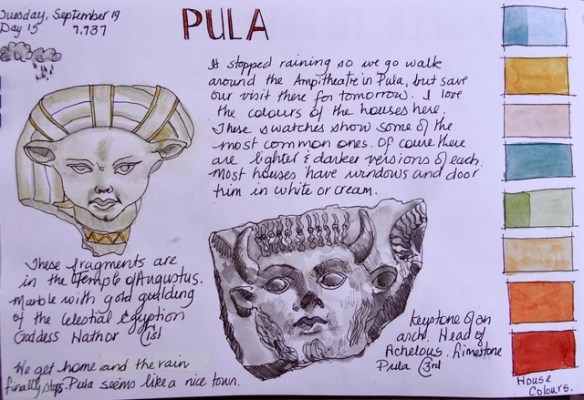 Tuesday, September 19
Day 15 7,737
PULA
It stopped raining so we go walk
around the Ampitheatre in Pula, but save
our visit there for tomorrow. I love
the colours of the houses here.
These swatches show some of the
most common ones. Of course there
are lighter & darker versions of each.
Most houses have windows and door
trim in white or cream.
These fragments are
in the Temple of Augustus.
Marble with gold guilding
of the Celestial Egyption
Goddess Hathor 1st
We get home and the rain
finally stops. Pula seems like a nice town.
Keystone of an
arch. Head of
Achelous. Limestone
Pula 3rd
House
Colours.